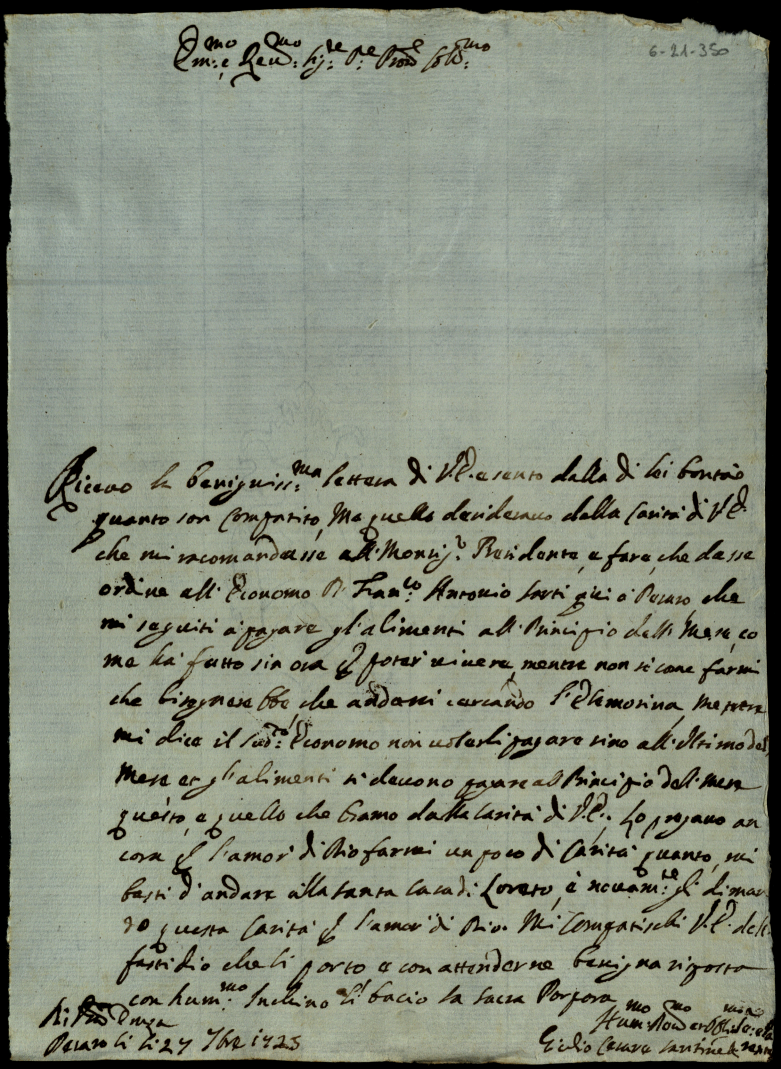 6-21-350
Em:mo e Reu:mo Sig:re P:re Pron Col:mo
Riceuo la benigniss:ma lettera di V.E. e sento dalla di lei bontà
quanto son Compatito, Ma quello desiderauo dalla Carità di V.E.
che mi racomandasse all Monsig:r Presidente, e fare, che dasse
ordine all' Economo D. Fran:co Antonio Sarti qui a Pesaro, che
mi seguiti a pagare gl'alimenti all Principio dell Mese, co
me ha fatto sin ora p poter uiuere, mentre non sò come farmi
che bisognerebbe che andassi cercando l'Elemosina, mentre
mi dice il sud:to Economo non uolerli pagare sino all'Ultimo del
Mese et gl'alimenti si deuono pagare al Principio dell mese
questo, e quello che bramo dalla Carità di V.E., Lo pregauo an
cora p l'amor di Dio farmi un poco di Carità quanto, mi
basti d'andare alla Santa Casa di Loreto, e nouam:te gli diman
do questa Carità p l'amor di Dio. Mi Compatischi V.E. dell
fastidio che li porto e con attenderne benigna risposta
con hum:mo Inchino li bacio la Sacra Porpora
Di V:ra Emza
Pesaro li 27 7bre 1723
Hum:mo Deu:mo et Obb:mo
Giulio Cesare